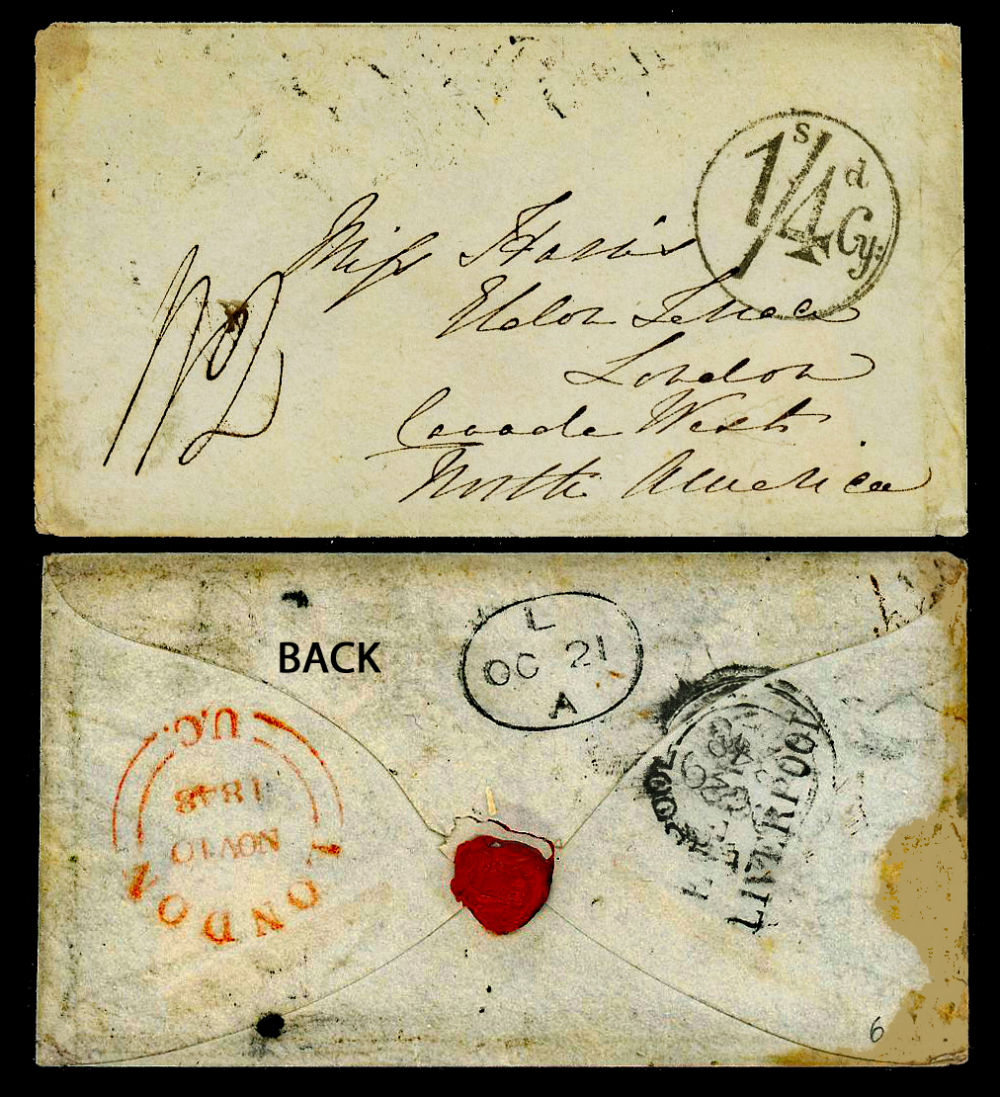 1s/4d Cy:
Miss Harris
Eldon Terrace
London
Canada West
North America
BACK
L
OC 21
A
U.C.
1848
NOV 10
LONDON
LIVERPOOL
6